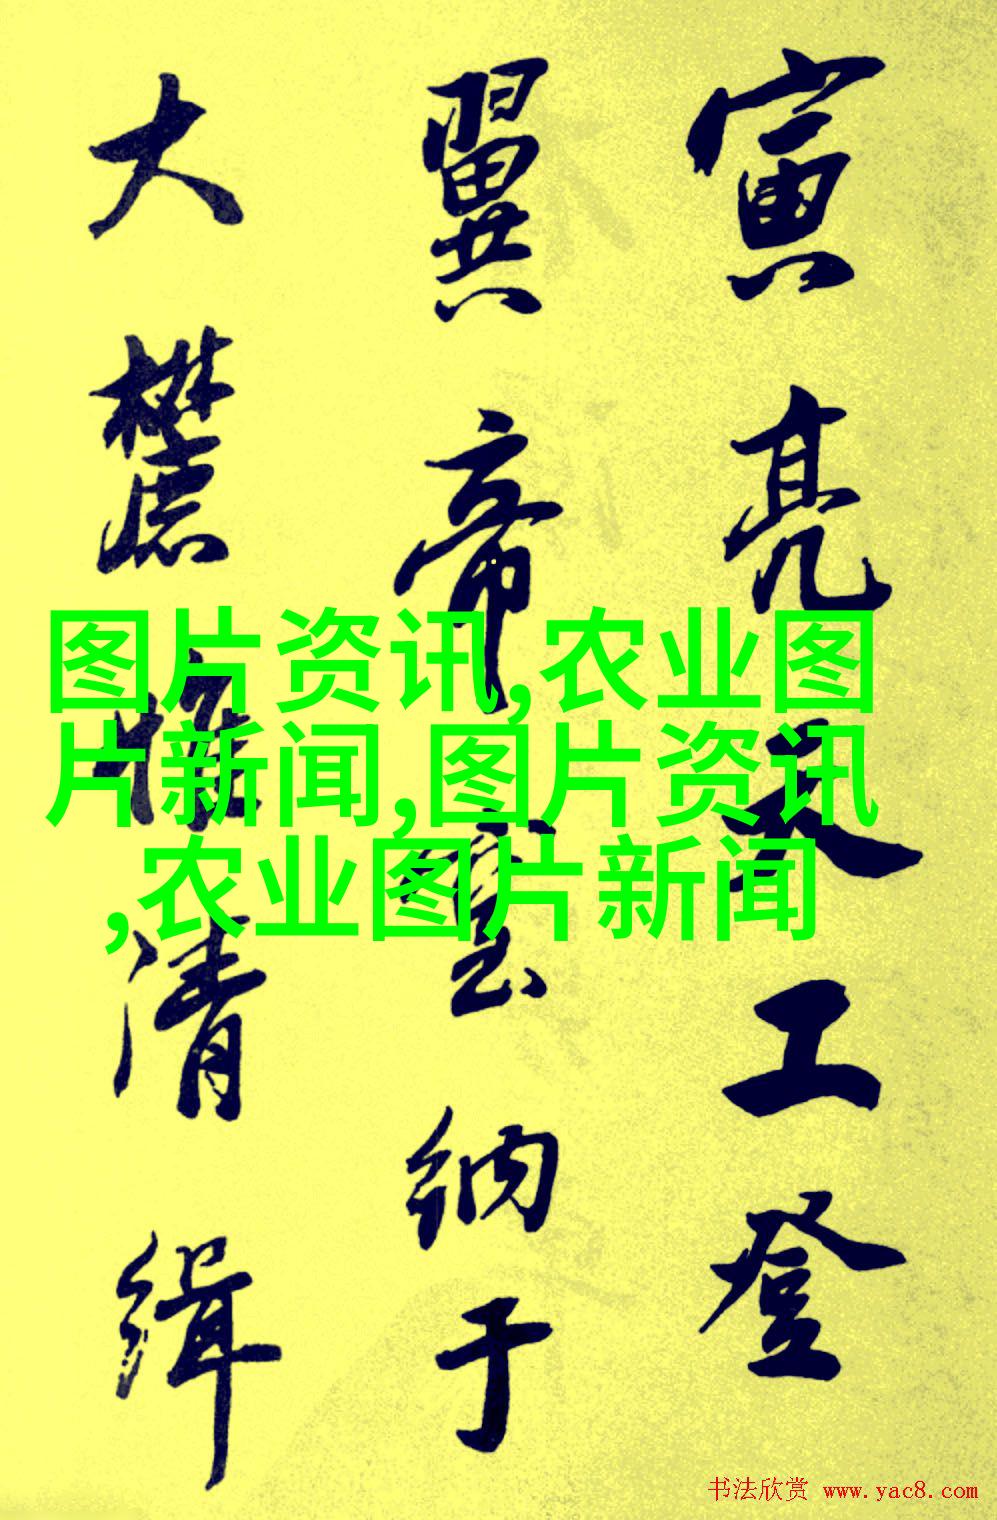 寅亮天工登
翼帝室纳于
大麓惟清缉
图片资讯,农业图
片新闻,图片资讯
,农业图片新闻
书法欣赏 www.yac8.com